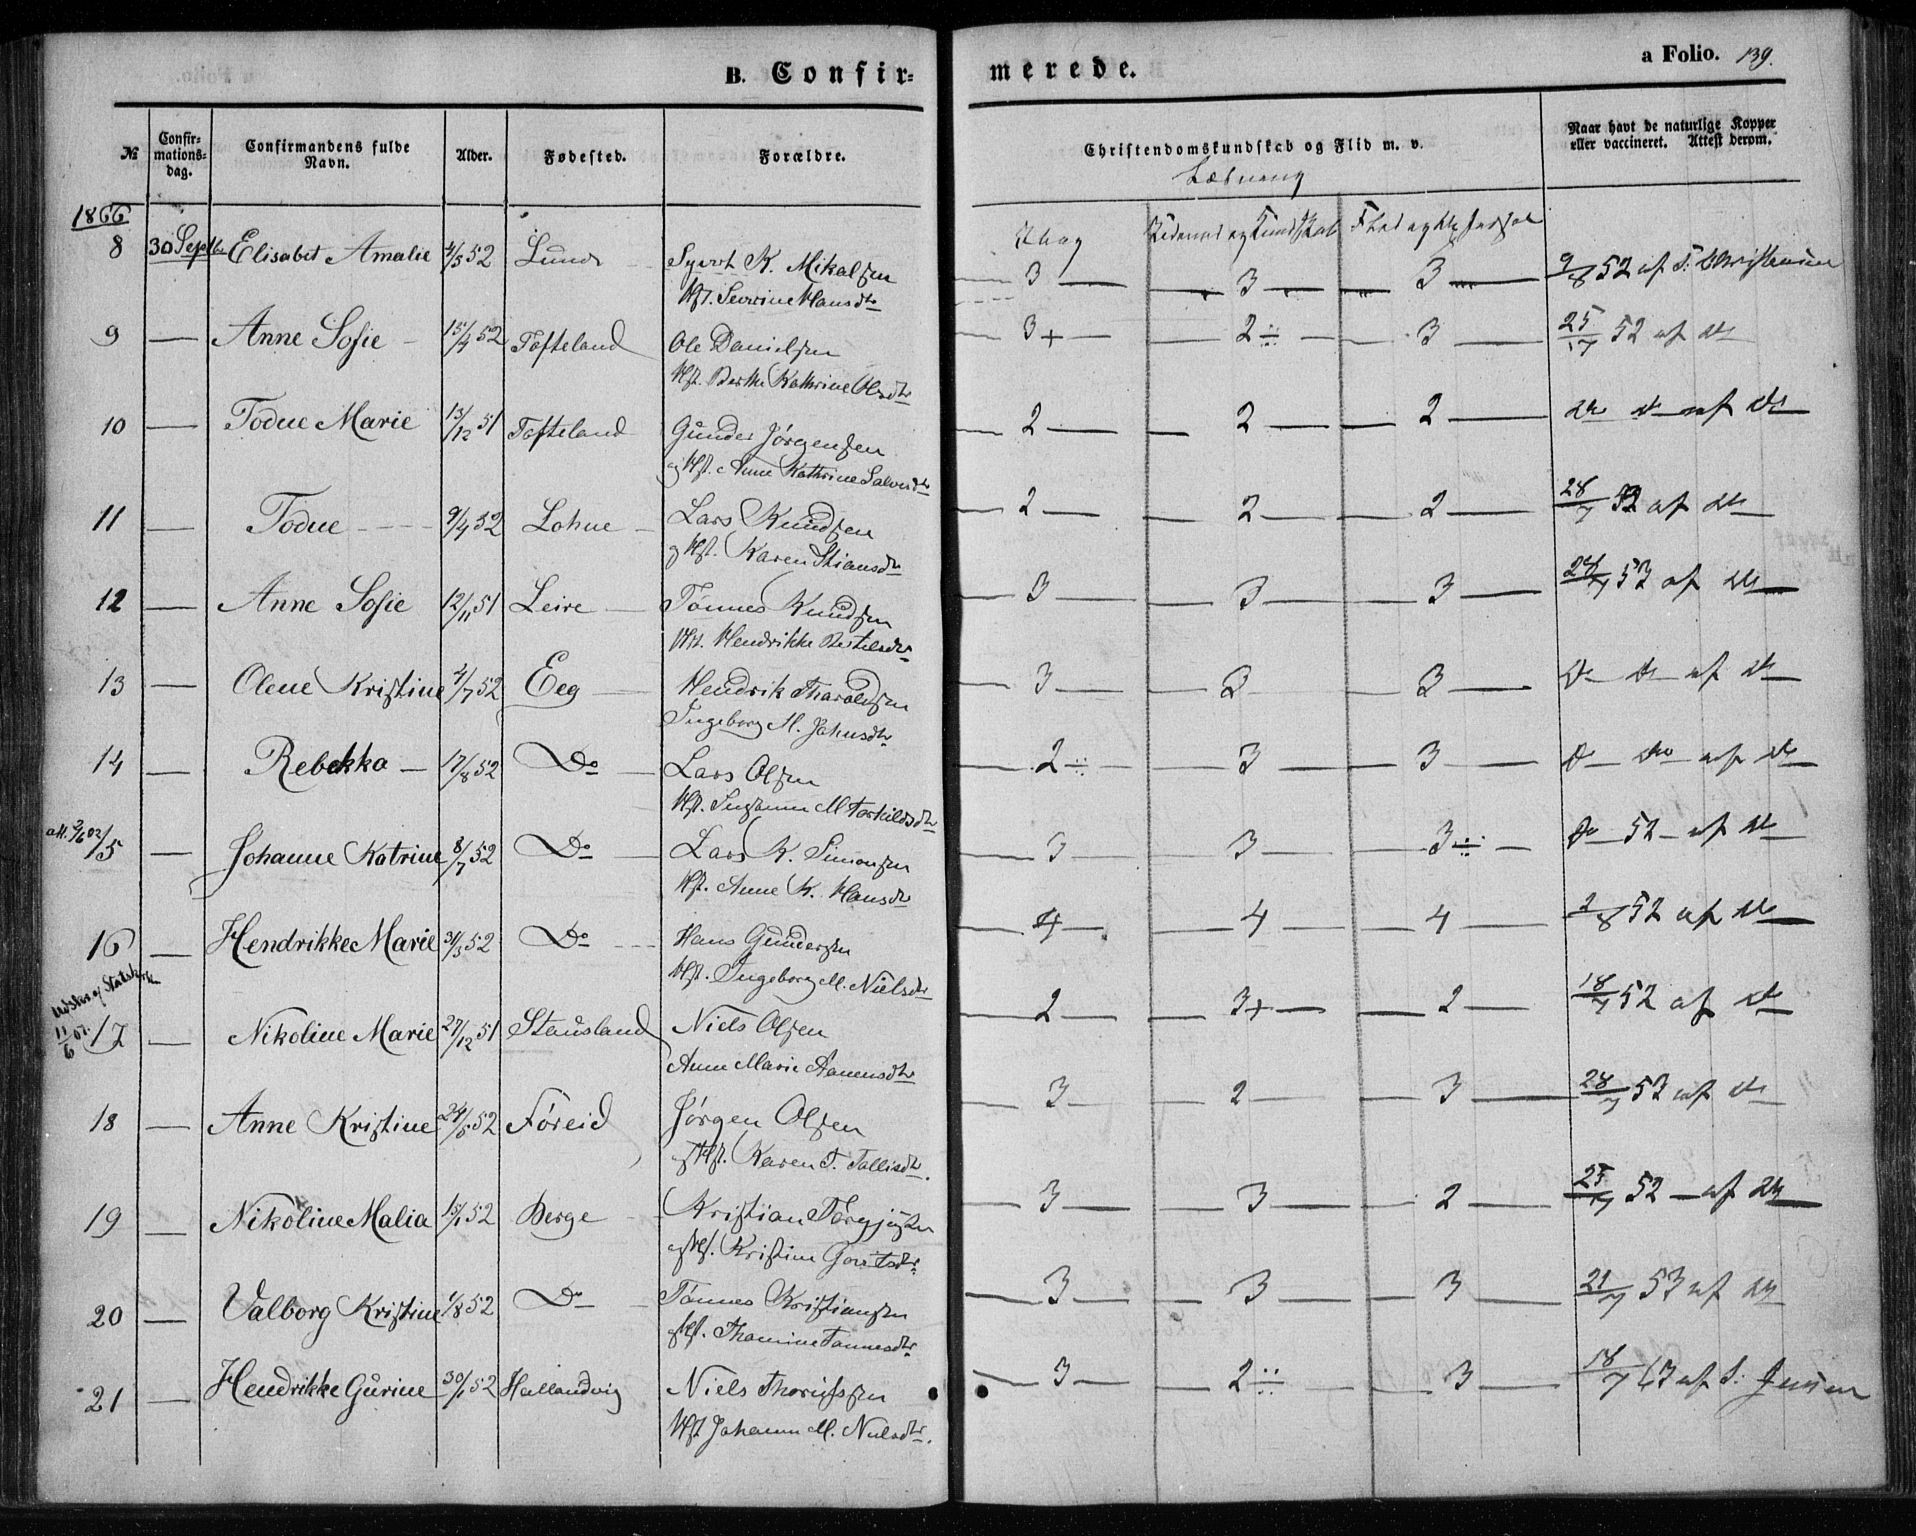 B. Confir=
merede.
a Folio. 139.
№
Confir=
mations=
dag.
Confirmandens fulde
Navn.
Alder.
Fødested.
Forældre.
Christendomskundskab og Flid m. v.
Naar havt de naturlige Kopper
eller vaccineret. Attest derom.
1866
8 30 Septbr Elisabet Amalie 4/5 52 Lunde Syvert K. Mikalsen 3 3 3 9/8 52 af T. Christensen
Hst. Sevrine Hansdtr
9 — Anne Sofie 15/4 52 Tofteland Ole Danielsen 3+ 2÷ 3 25/7 52 af do
Hst. Berthe Kathrine Olsdtr
10 — Todne Marie 13/12 51 Tofteland Gunder Jørgensen 2 2 2 do do af do
og Hst. Anne Kathrine Salvesdtr
11 — Todne 9/4 52 Lohne Lars Knudsen 2 2 2 28/7 52 af do
og Hst. Karen Stiansdtr
12 — Anne Sofie 12/11 51 Leire Tønnes Knudsen 3 3 3 28/7 53 af do
Hst. Hendrikke Bertelsdtr
13 — Olene Kristine 4/7 52 Eeg Hendrik Tharaldsen 3 3 3 do do af do
Ingeborg M. Jahnsdtr
14 — Rebekka 17/8 52 Do Lars Olsen 2÷ 3 3 do do af do
Hst. Susanne M Torkildsdtr
att. 2/6 02
15 — Johanne Katrine 8/7 52 Do Lars K. Simonsen 3 3 3÷ do 52 af do
Hst. Anne K. Hansdtr
16 — Hendrikke Marie 31/3 52 Do Hans Gundersen 4 4 4 2/8 52 af do
Hst. Ingeborg M. Nielsdtr
Udskr. af Statskirk
11/6 07.
17 — Nikoline Marie 27/12 51 Stausland Niels Olsen 2 3+ 2 18/7 52 af do
Anne Marie Aanensdtr
18 — Anne Kristine 24/5 52 Føreid Jørgen Olsen 3 2 3 28/7 53 af do
og Hst. Karen T. Tallisdtr.
19 — Nikoline Malia 15/1 52 Berge Kristian Torgjusen 3 3 2 25/7 52 af do
og Hst. Kristine
20 — Valborg Kristine 1/8 52 Do Tønnes Kristiansen 3 3 3 21/7 53 af do
Hst. Thomine Tønnesdtr
21 — Hendrikke Gurine 30/1 52 Hallandvig Niels 3 2÷ 3 18/7 63 af S. Jensen
Hst Johanne M. Nielsdtr.